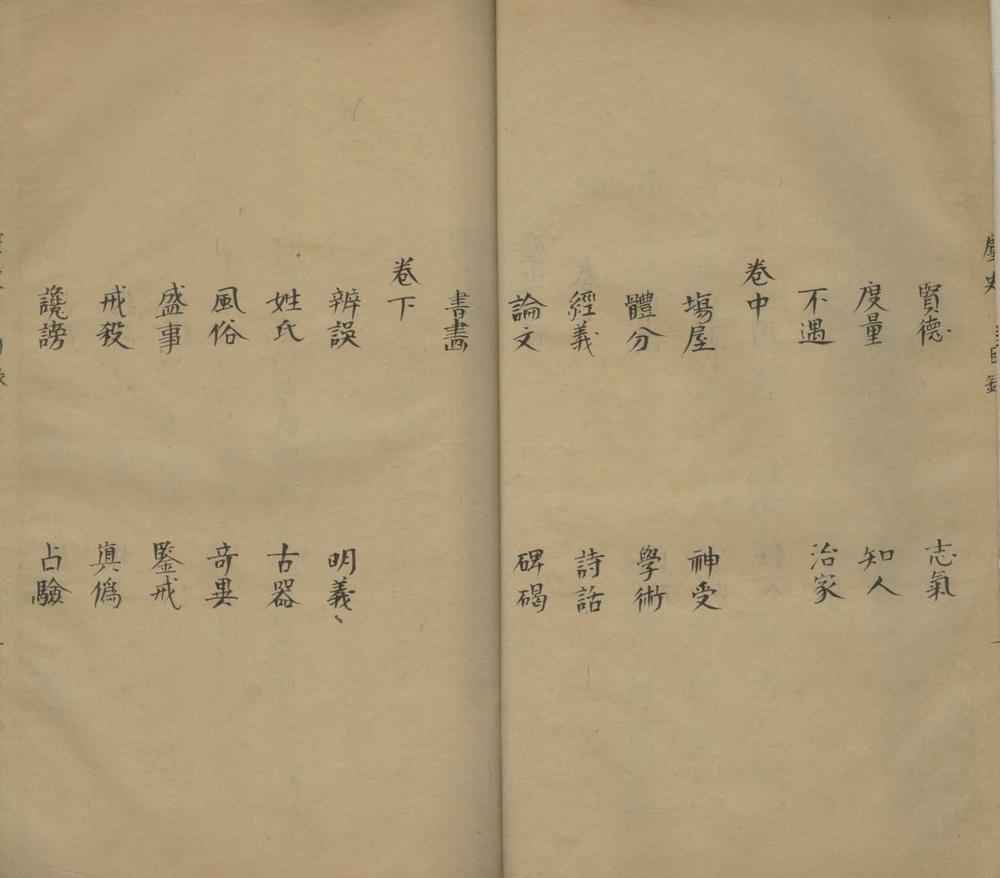 賢德 志氣
度量 知人
不遇 治家
卷中
塲屋 神受
體分 學術
經義 詩話
論文 碑碣
書畫
卷下
辨誤 明義
姓氏 古器
風俗 奇異
盛事 鑒戒
戒殺 眞僞
讒謗 占驗